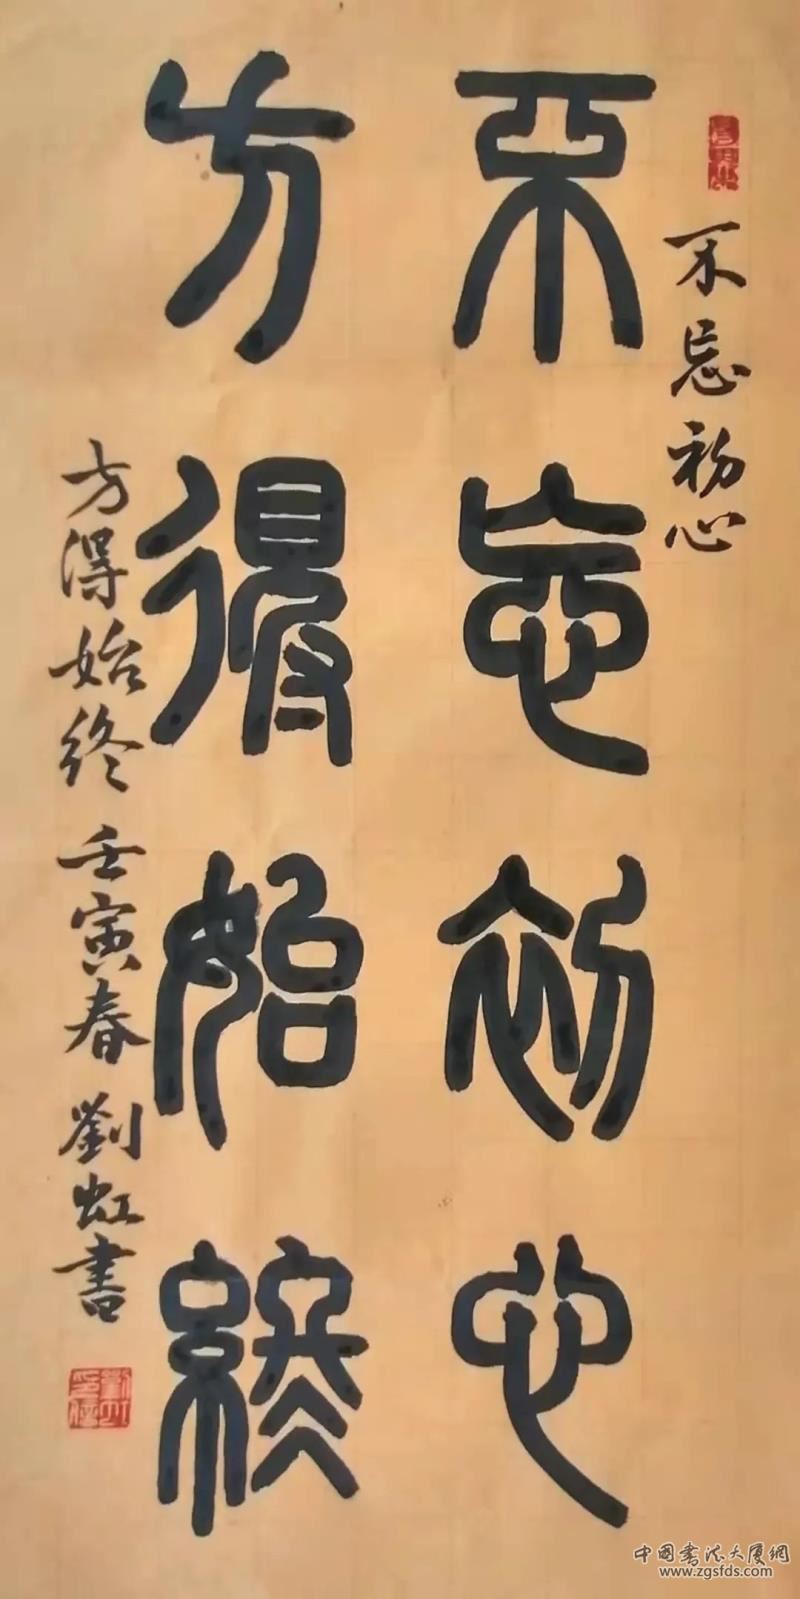 不忘初心
不忘初心
方得始终
方得始终 壬寅春 劉虹書
中国书法大厦網
www.zgsfds.com